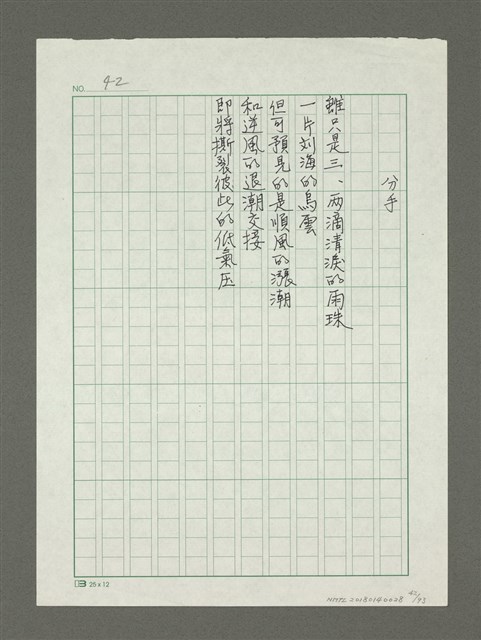 NO. 42
分手
雖只是三、兩滴清淚的雨珠
一片刘海的烏雲
但可預見的是順風的漲潮
和逆風的退潮交接
即將撕裂彼此的低氣压
25x12
NMTL20180140028 42/93